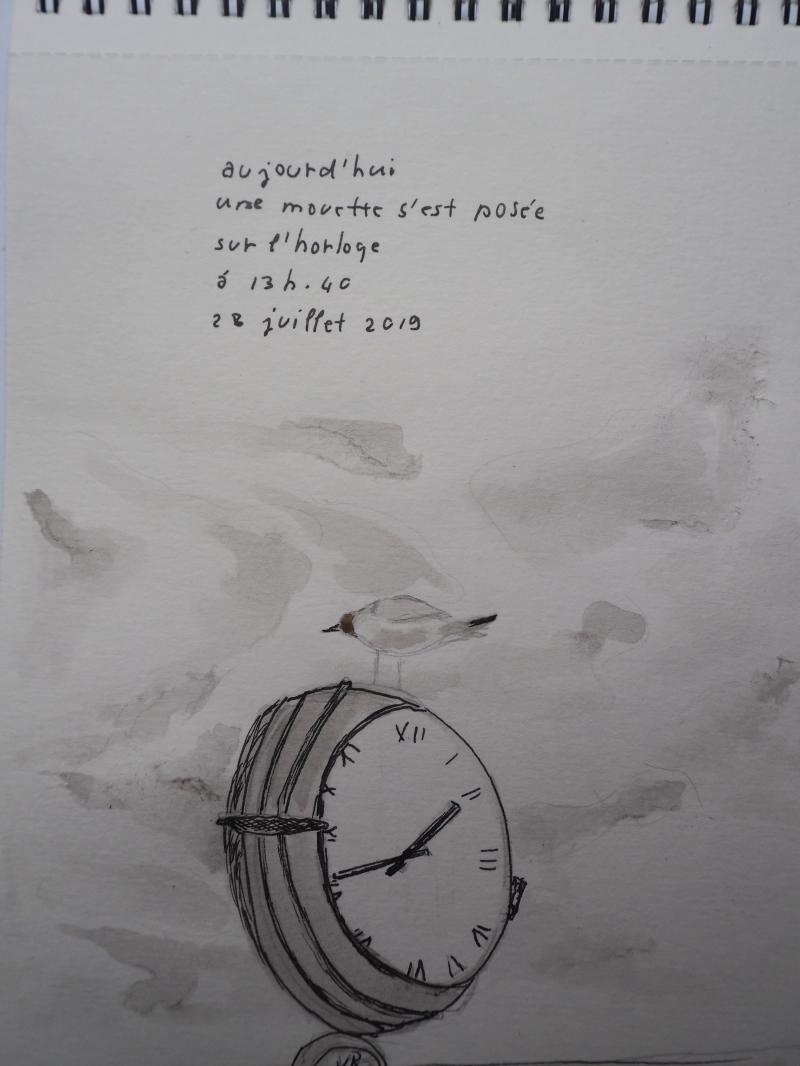 aujourd'hui
une mouette s'est posée
sur l'horloge
à 13 h. 40
28 juillet 2019
XII
I
II
III